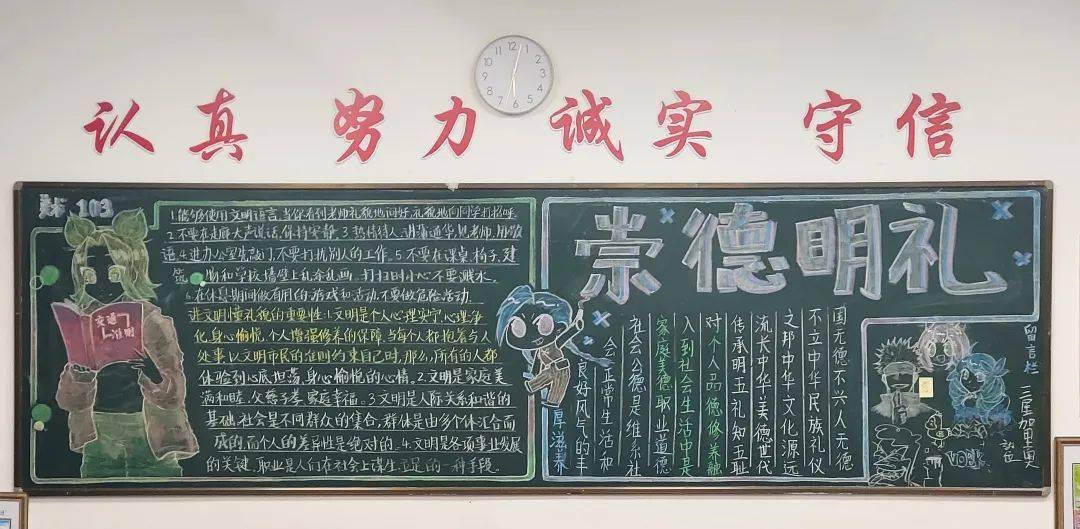 认真 努力 诚实 守信
12 1 2 3 4 5 6 7 8 9 10 11
103
1.能够使用文明语言,当你看到老师礼貌地问好,礼貌地向同学打招呼
2.不要在走廊大声说话,保持安静.3.热情待人,讲普通话,见老师,用敬
语.4.进办公室先敲门,不要打扰别人的工作.5.不要在课桌、椅子、建
筑物和学校墙壁上乱涂乱画.打扫时小心不要溅水.
6.在休息期间做有用的游戏和活动.不要做危险活动.
讲文明懂礼貌的重要性:1.文明是个人心理实守心理净
化,身心愉悦,个人增强修养的保障,当每个人都抱着与人
处事以文明市民的准则约束自己时,那么,所有的人都
体验到心底坦荡,身心愉悦的心情.2.文明是家庭美
满和睦,父慈子孝,家庭幸福.3.文明是人际关系和谐的
基础,社会是不同群众的集合,群体是由多个体汇合而
成的,而个人的差异性是绝对的.4.文明是各项事业发展
的关键,职业是人们在社会上谋生立足的一种手段.
交通
准则
崇德明礼
国无德不兴人无德
不立中华民族礼仪
之邦中华文化源远
流长中华美德世代
传承明五礼知五耻
对个人品德修养融
入到社会生活中是
家庭美德职业道德
社会公德是维系社
会正常生活和
良好风气的丰
厚滋养
留言栏
三星加里奥